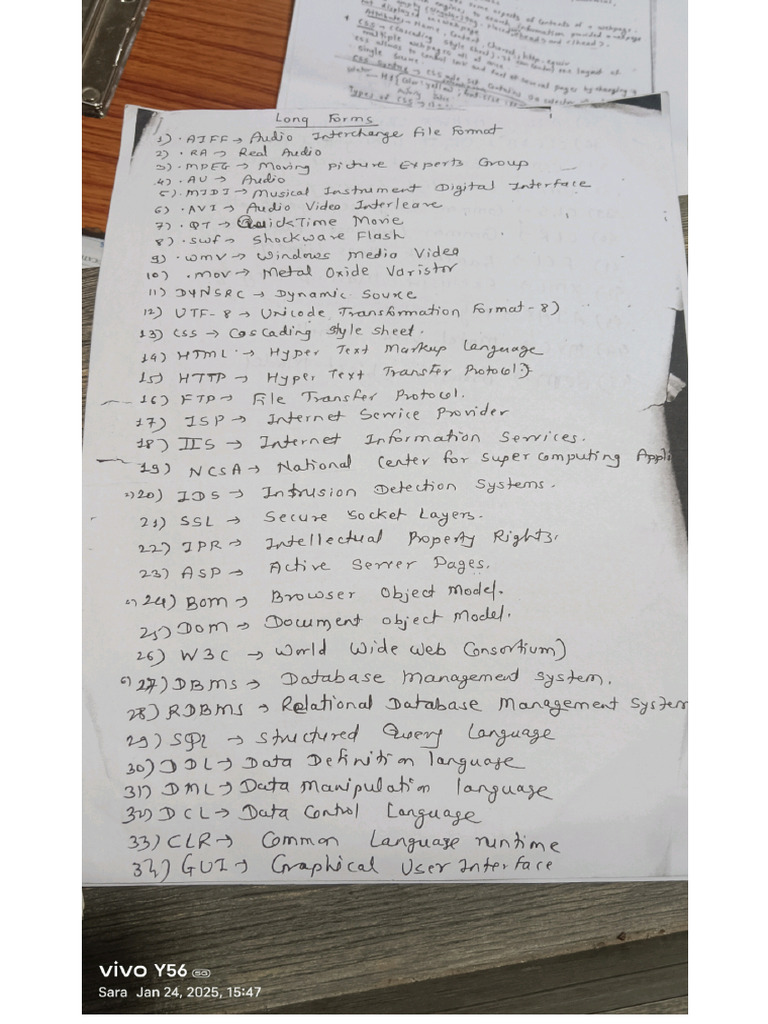 not displayed on webpage
Long Forms
1) .AIFF → Audio Interchange File Format
2) .RA → Real Audio
3) .MPEG → Moving Picture Experts Group
4) .AU → Audio
5) .MIDI → Musical Instrument Digital Interface
6) .AVI → Audio Video Interleave
7) .QT → QuickTime Movie
8) .swf → Shockwave Flash
9) .wmv → Windows Media Video
10) .mov → Metal Oxide Varistor
11) DYNSRC → Dynamic Source
12) UTF-8 → Unicode Transformation Format-8)
13) CSS → Cascading style sheet.
14) HTML → Hyper Text Markup Language
15) HTTP → Hyper Text Transfer Protocol)
16) FTP → File Transfer Protocol.
17) ISP → Internet Service Provider
18) IIS → Internet Information Services.
19) NCSA → National Center for Super computing Appli
20) IDS → Intrusion Detection Systems.
21) SSL → Secure Socket Layers.
22) IPR → Intellectual Property Rights.
23) ASP → Active Server Pages.
24) BOM → Browser Object Model.
25) DOM → Document object Model.
26) W3C → World Wide Web Consortium)
27) DBMS → Database Management system.
28) RDBMS → Relational Database Management System
29) SQL → Structured Query Language
30) DDL → Data Definition language
31) DML → Data Manipulation language
32) DCL → Data Control Language
33) CLR → Common Language runtime
34) GUI → Graphical User Interface
vivo Y56 5G
Sara Jan 24, 2025, 15:47